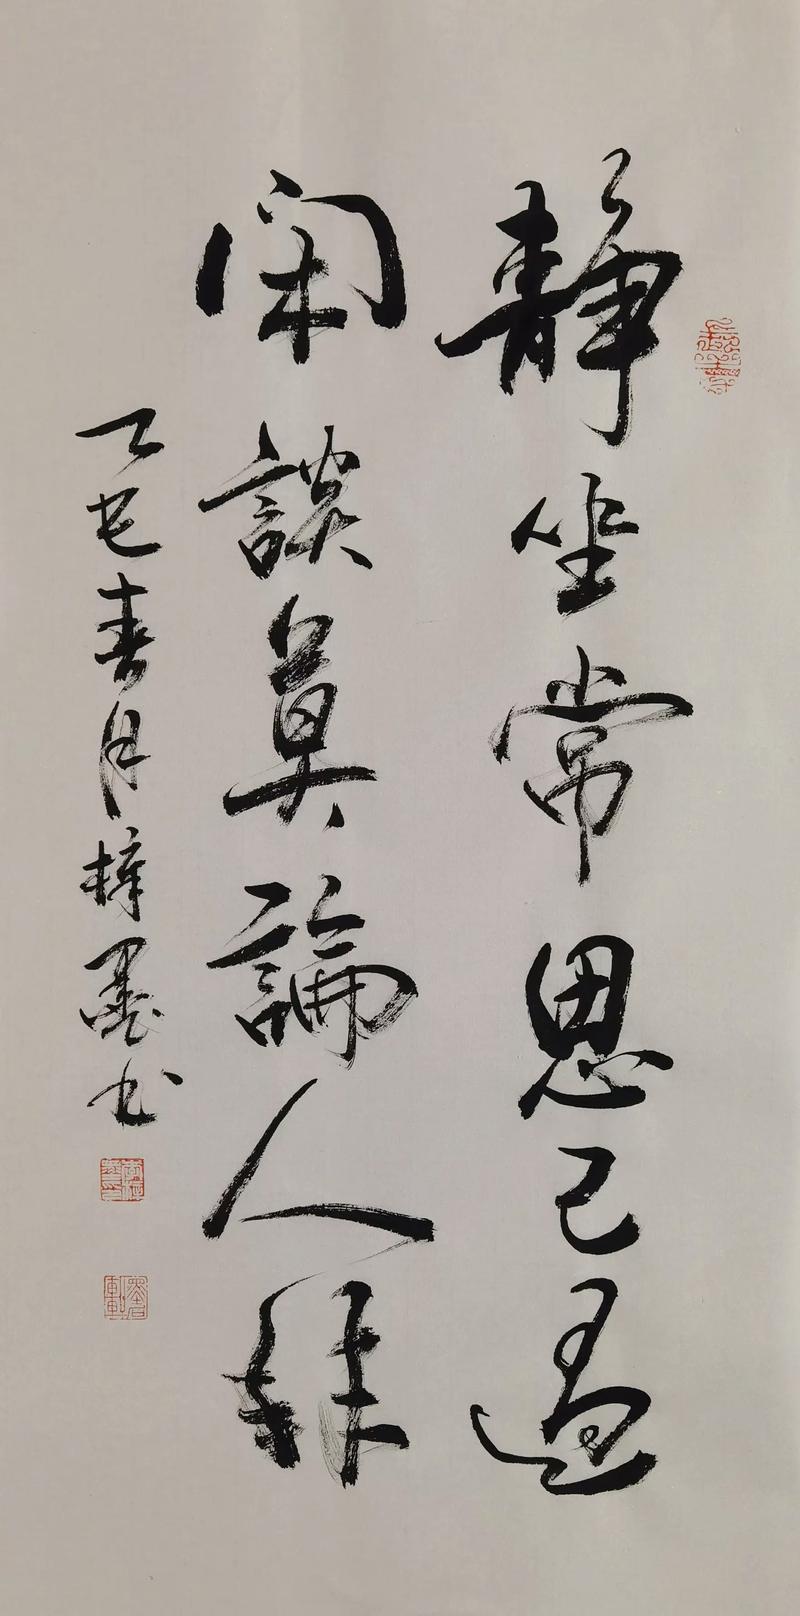 靜坐常思己過
閑談莫論人非
乙巳春月梓墨书